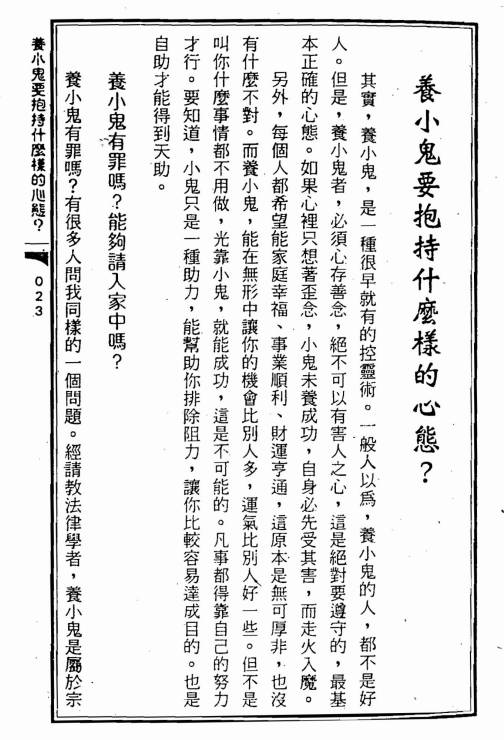 養小鬼要抱持什麼樣的心態？
其實，養小鬼，是一種很早就有的控靈術。一般人以為，養小鬼的人，都不是好
人。但是，養小鬼者，必須心存善念，絕不可以有害人之心，這是絕對要遵守的，最基
本正確的心態。如果心裡只想著歪念，小鬼未養成功，自身必先受其害，而走火入魔。
另外，每個人都希望能家庭幸福、事業順利、財運亨通，這原本是無可厚非，也沒
有什麼不對。而養小鬼，能在無形中讓你的機會比別人多，運氣比別人好一些。但不是
叫你什麼事情都不用做，光靠小鬼，就能成功，這是不可能的。凡事都得靠自己的努力
才行。要知道，小鬼只是一種助力，能幫助你排除阻力，讓你比較容易達成目的。也是
自助才能得到天助。
養小鬼有罪嗎？能夠請入家中嗎？
養小鬼有罪嗎？有很多人問我同樣的一個問題。經請教法律學者，養小鬼是屬於宗
養小鬼要抱持什麼樣的心態？
023